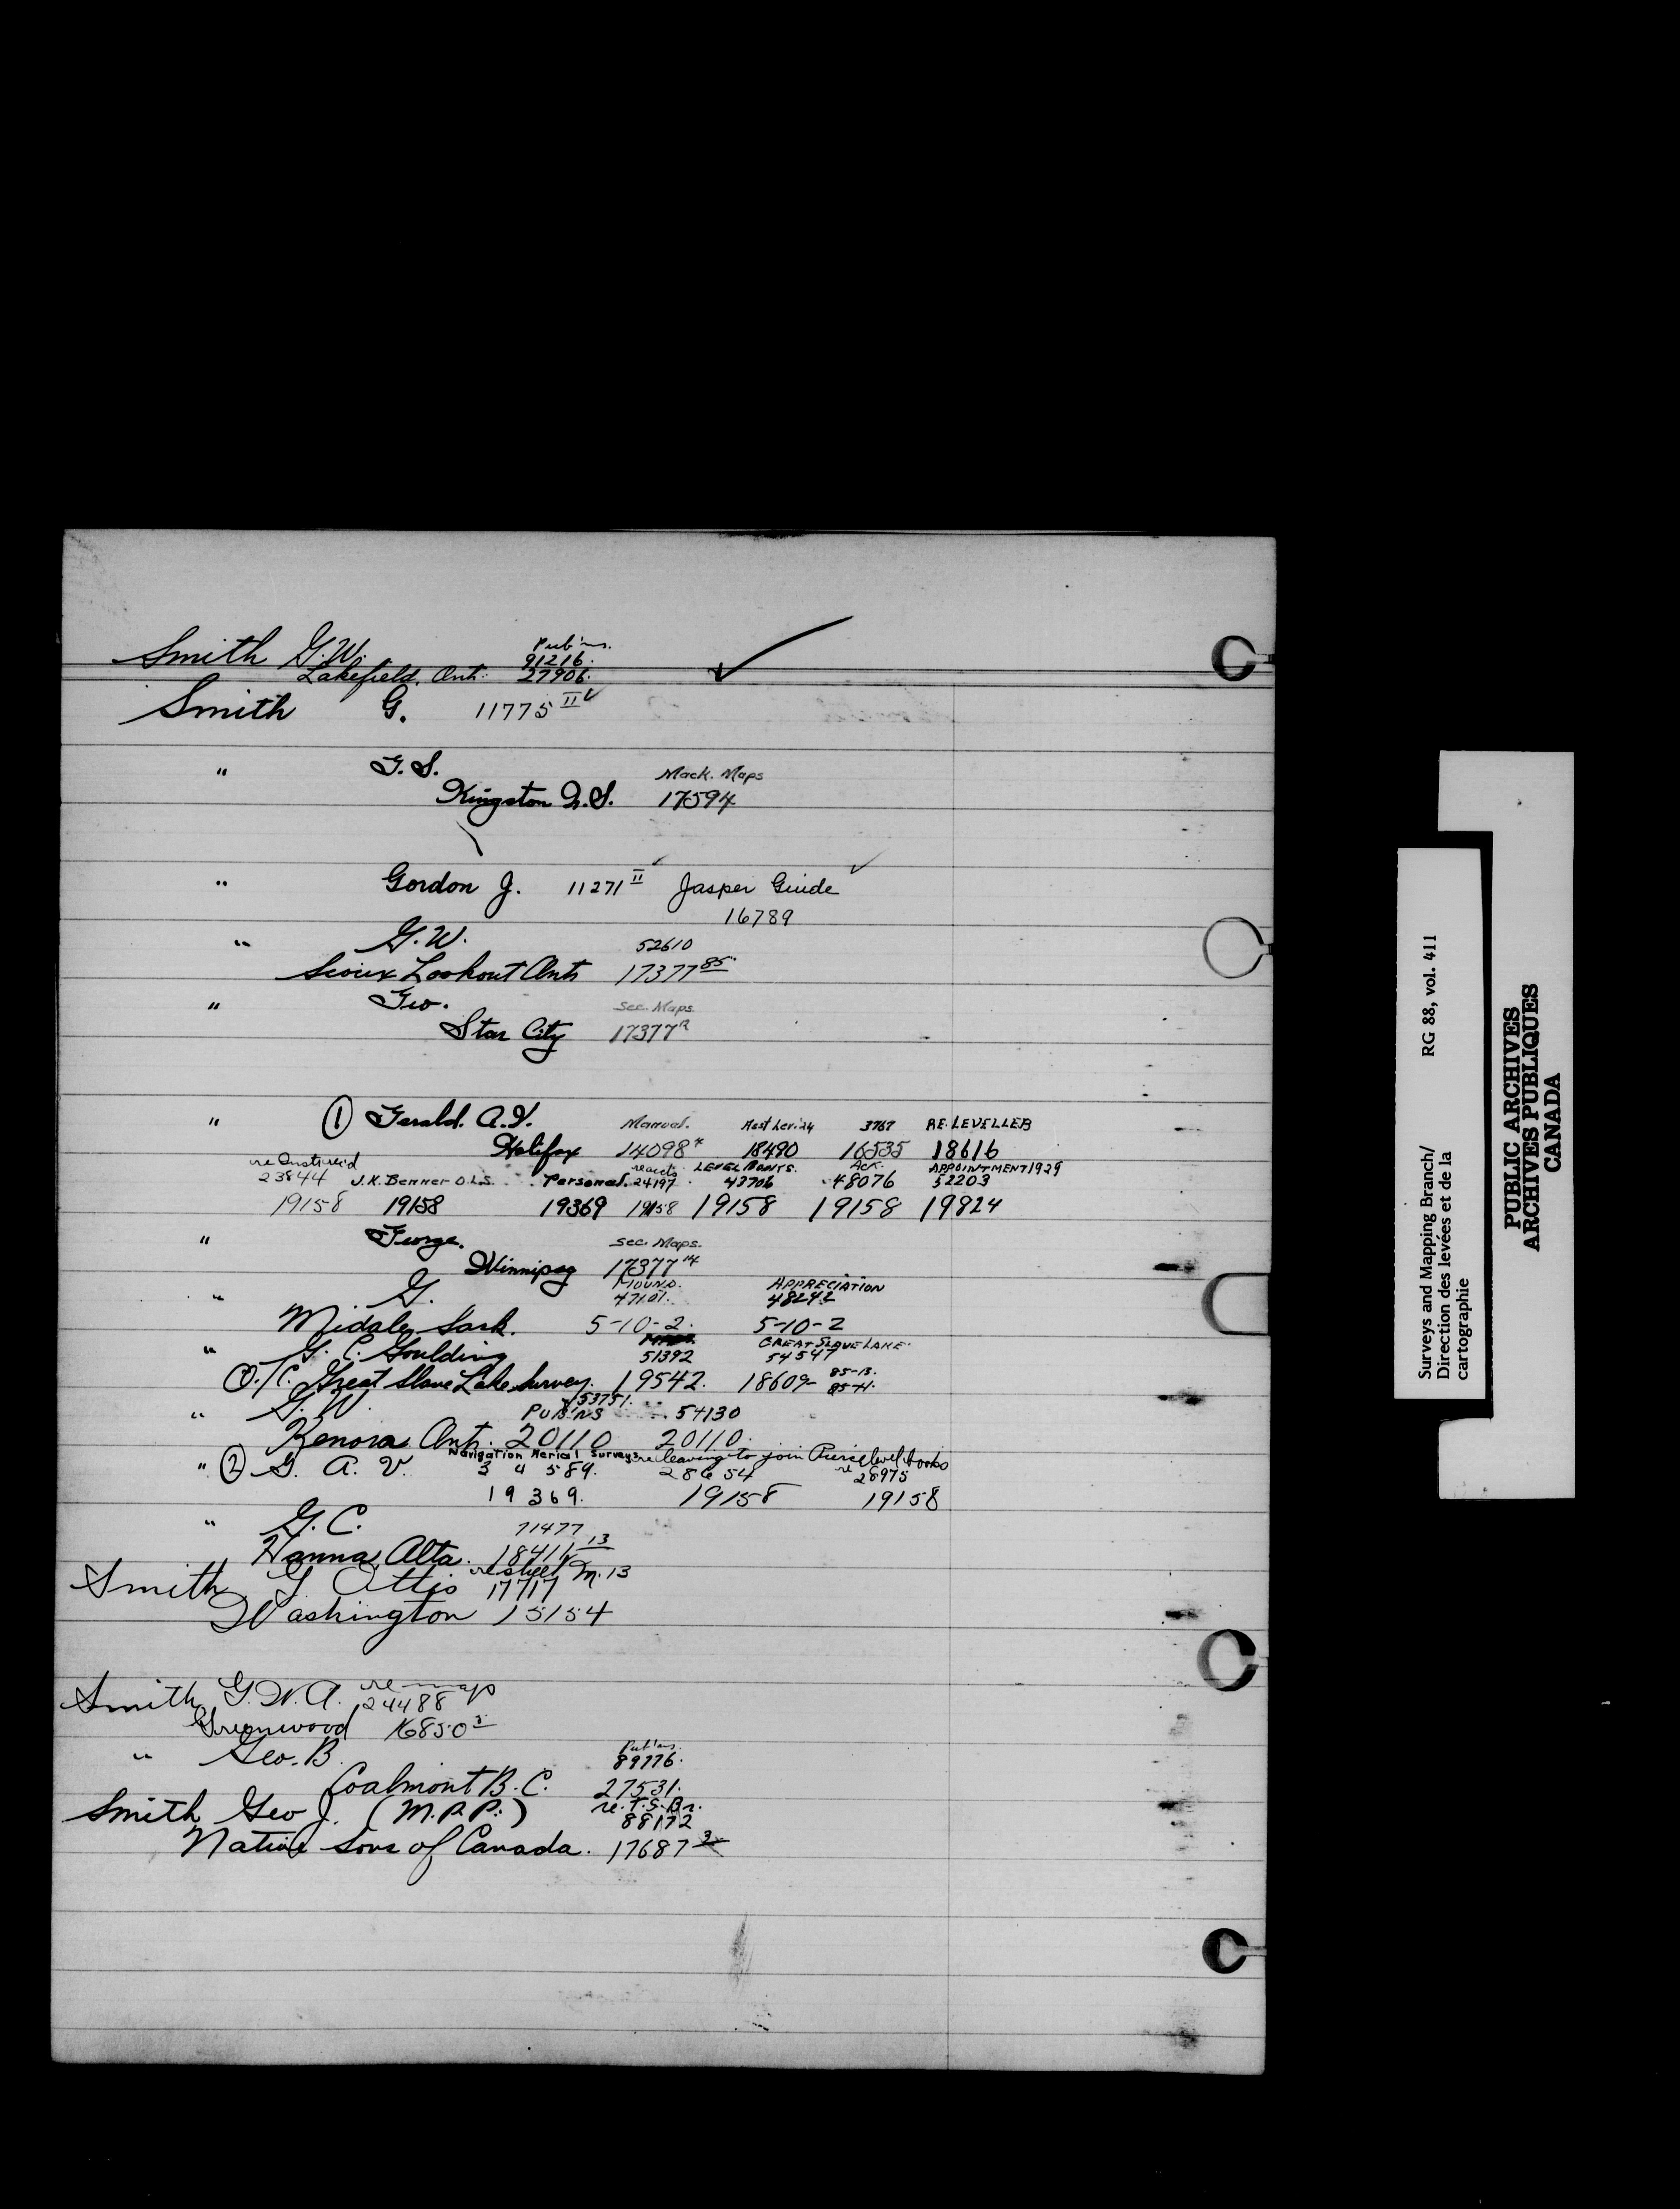 Smith G.W. Pub'ns.
91216.
Lakefield, Ont. 27906.
Smith G. 11775 II
" G. S. Mack. Maps
Kingston N.S. 17594
" Gordon J. 11271 II Jasper Guide
16789
" G.W. 52610
Sioux Lookout Ont 17377 85
" Geo. Sec. Maps
Star City 17377
" 1 Gerald. A.V. Manual. 3767 RE. LEVELLER
Halifax 14098 18490 16535 18616
re Inst. re'd re accts LEVEL Ack. APPOINTMENT 1929
23844 J.K. Benner O.L.S. Personal. 24197 43706 48076 52203
19158 19158 19369 19158 19158 19158 19824
" George. Sec. Maps.
Winnipeg 17377 14
" G. MOUND. APPRECIATION
47101. 48242
Midale, Sask. 5-10-2. 5-10-2
" G. C. Goulding 51392 GREAT SLAVE LAKE.
54547
O./C. Great Slave Lake Survey. 19542. 18609- 85-B.
85-H.
" G. W. 53751.
PUB'NS 54130
Kenora Ont. 20110 20110.
Navigation Aerial Surveys re leaving to join level books
" 2 G. A. V. 34589. 28654 re 28975
19369. 19158 19158
" G. C. 71477
Hanna, Alta. 18411 13
re sheet M. 13
Smith, G. Ottis 17717
Washington 15154
Smith G. W. A. re map
24488
Greenwood 16850
" Geo. B. Pub'ns.
89776.
Coalmont B. C. 27531.
Smith Geo J. (M.P.P.) re. T. S. Br.
88172
Native Sons of Canada. 17687
Surveys and Mapping Branch/ RG 88, vol. 411
Direction des levées et de la
cartographie
PUBLIC ARCHIVES
ARCHIVES PUBLIQUES
CANADA